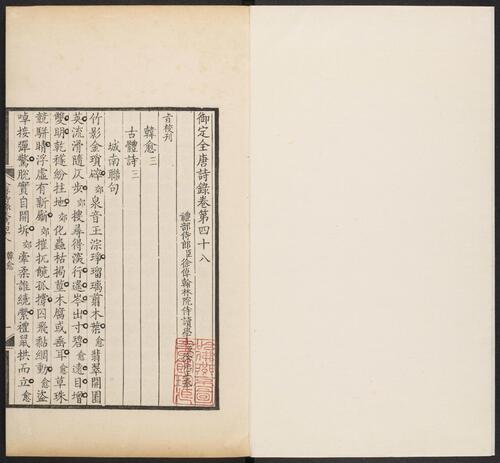 御定全唐詩錄卷第四十八
禮部侍郎臣徐倬翰林院侍讀學
旨校刊
韓愈三
古體詩三
城南聯句
竹影金瑣碎郊泉音玉淙琤瑠璃翦木葉愈翡翠開園
英流滑隨仄步郊搜尋得深行遙岑出寸碧愈遠目增
雙明乾穟紛拄地郊化蟲枯挶莖木腐或垂耳愈草珠
競駢睛浮虛有新劚郊摧扤饒孤撐囚飛黏網動愈盜
啅接彈驚脫實自開坼郊牽柔誰繞縈禮鼠拱而立愈
韓愈
一